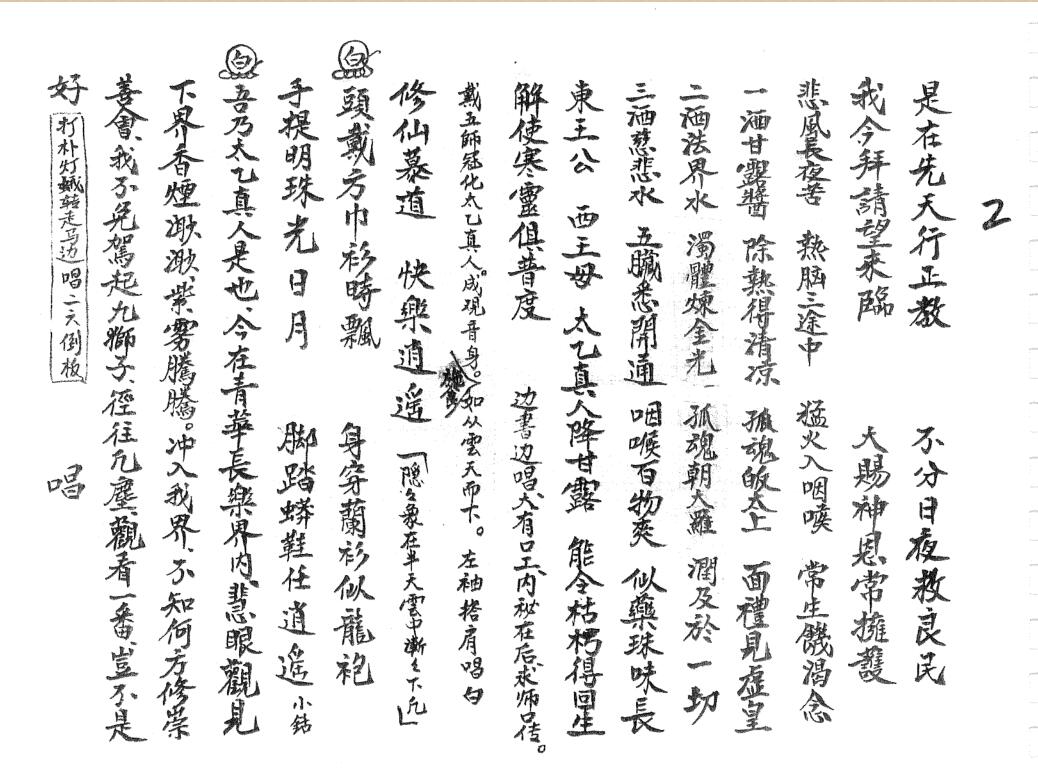 2
是在先天行正教 不分日夜救良民
我今拜請望來臨 大賜神恩常擁護
悲風長夜苦 熱脑三途中 猛火入咽喉 常生饑渴念
一洒甘露醬 除熱得清凉 孤魂皈太上 面禮見虛皇
二洒法界水 濁體煉金光 孤魂朝大羅 潤及於一切
三洒慈悲水 五臟悉開通 咽喉百物爽 似藥珠味長
東王公 西王母 太乙真人降甘露 能令枯樗得回生
解使寒靈俱普度 边書边唱、大有口工、内秘在后、求师口传。
戴五師冠化太乙真人。成观音身。如从雲天而下。 左袖搭肩唱白
修仙慕道 快樂逍遥 「隱々象在半天雲中漸々下凢」
白 頭戴方巾衫時飄 身穿蘭衫似龍袍
手提明珠光日月 脚踏蟒鞋任逍遥 小鈷
白 吾乃太乙真人是也、今在青華長樂界内、慧眼觀見
下界香煙渺渺、紫雾騰騰。冲入我界、不知何方修崇
善會、我不免駕起九獅子、徑往凢塵、觀看一番、豈不是
好 打朴灯蛾转走马边 唱二六倒板 唱